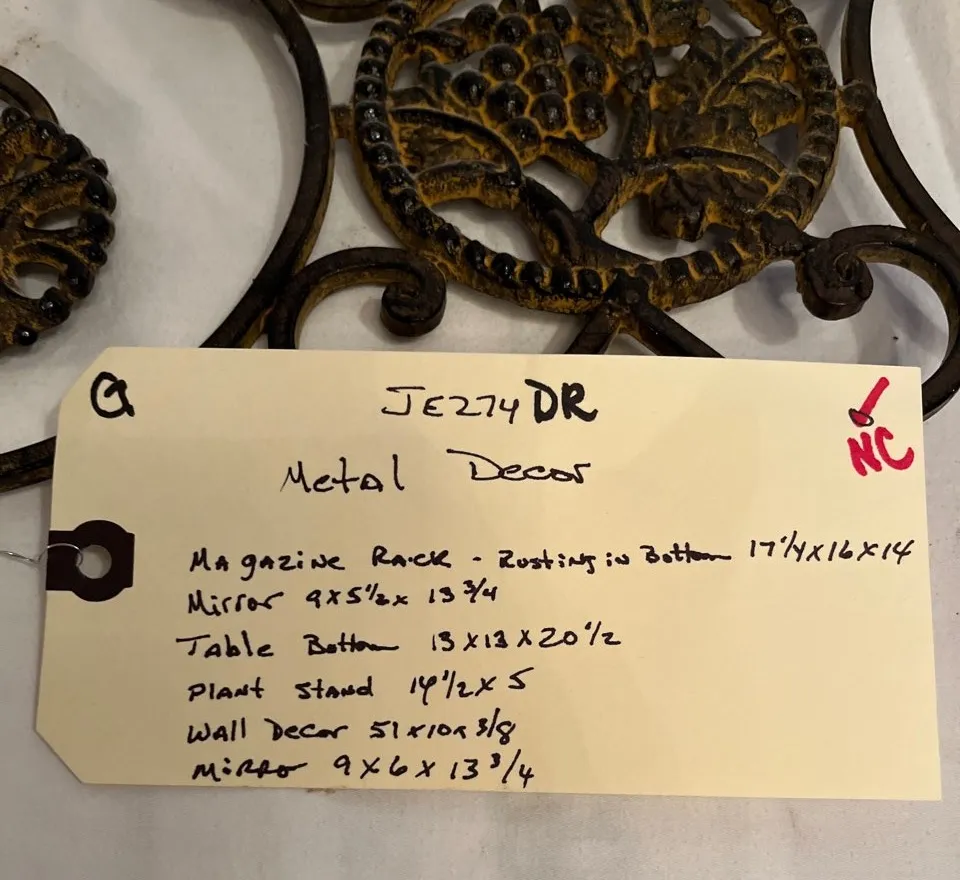 Q
JE274DR
NC
Metal Decor
Magazine Rack - Rusting in Bottom 17 1/4 x 16 x 14
Mirror 9 x 5 1/2 x 13 3/4
Table Bottom 13 x 13 x 20 1/2
Plant Stand 14 1/2 x 5
Wall Decor 51 x 10 x 3/8
Mirro 9 x 6 x 13 3/4